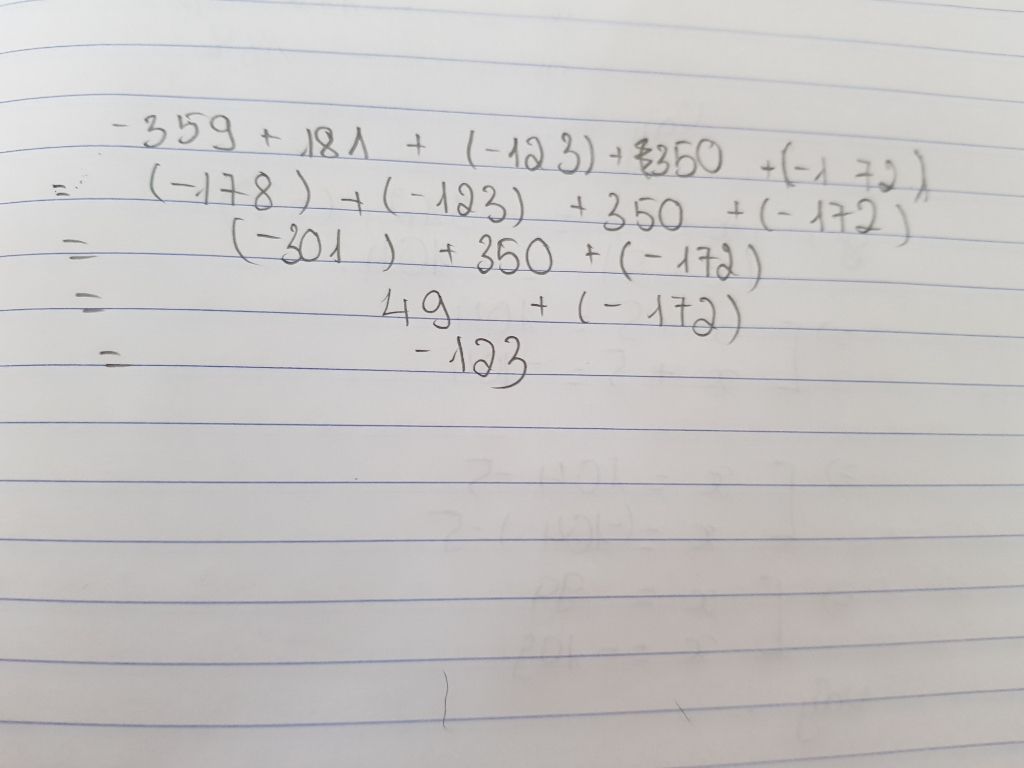 -359 + 181 + (-123) + 350 + (-172)
= (-178) + (-123) + 350 + (-172)
= (-301) + 350 + (-172)
= 49 + (-172)
= -123